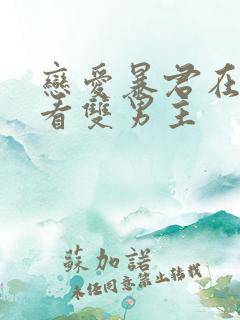 戀愛暴君在
看雙男主
蘇加諾
未經同意禁止轉載